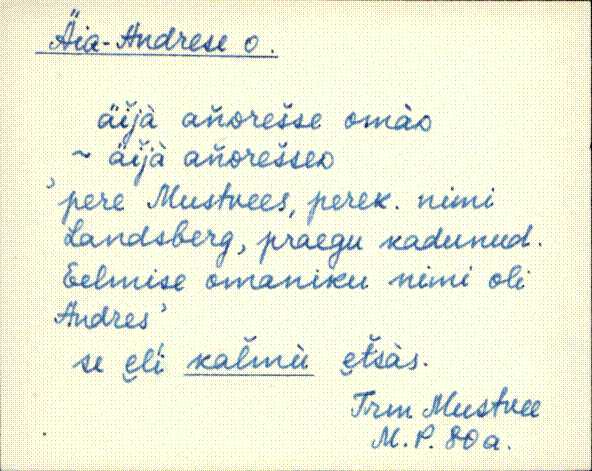 Äia-Andrese o.
äi̬jà añdrešse omàd
~ äi̬jà añdrešsed
'pere Mustvees, perek. nimi
Landsberg, praegu kadunud.
Eelmise omaniku nimi oli
Andres'
se ęĺi kaľmù ęťsàs.
Trm Mustvee
M. P. 80 a.